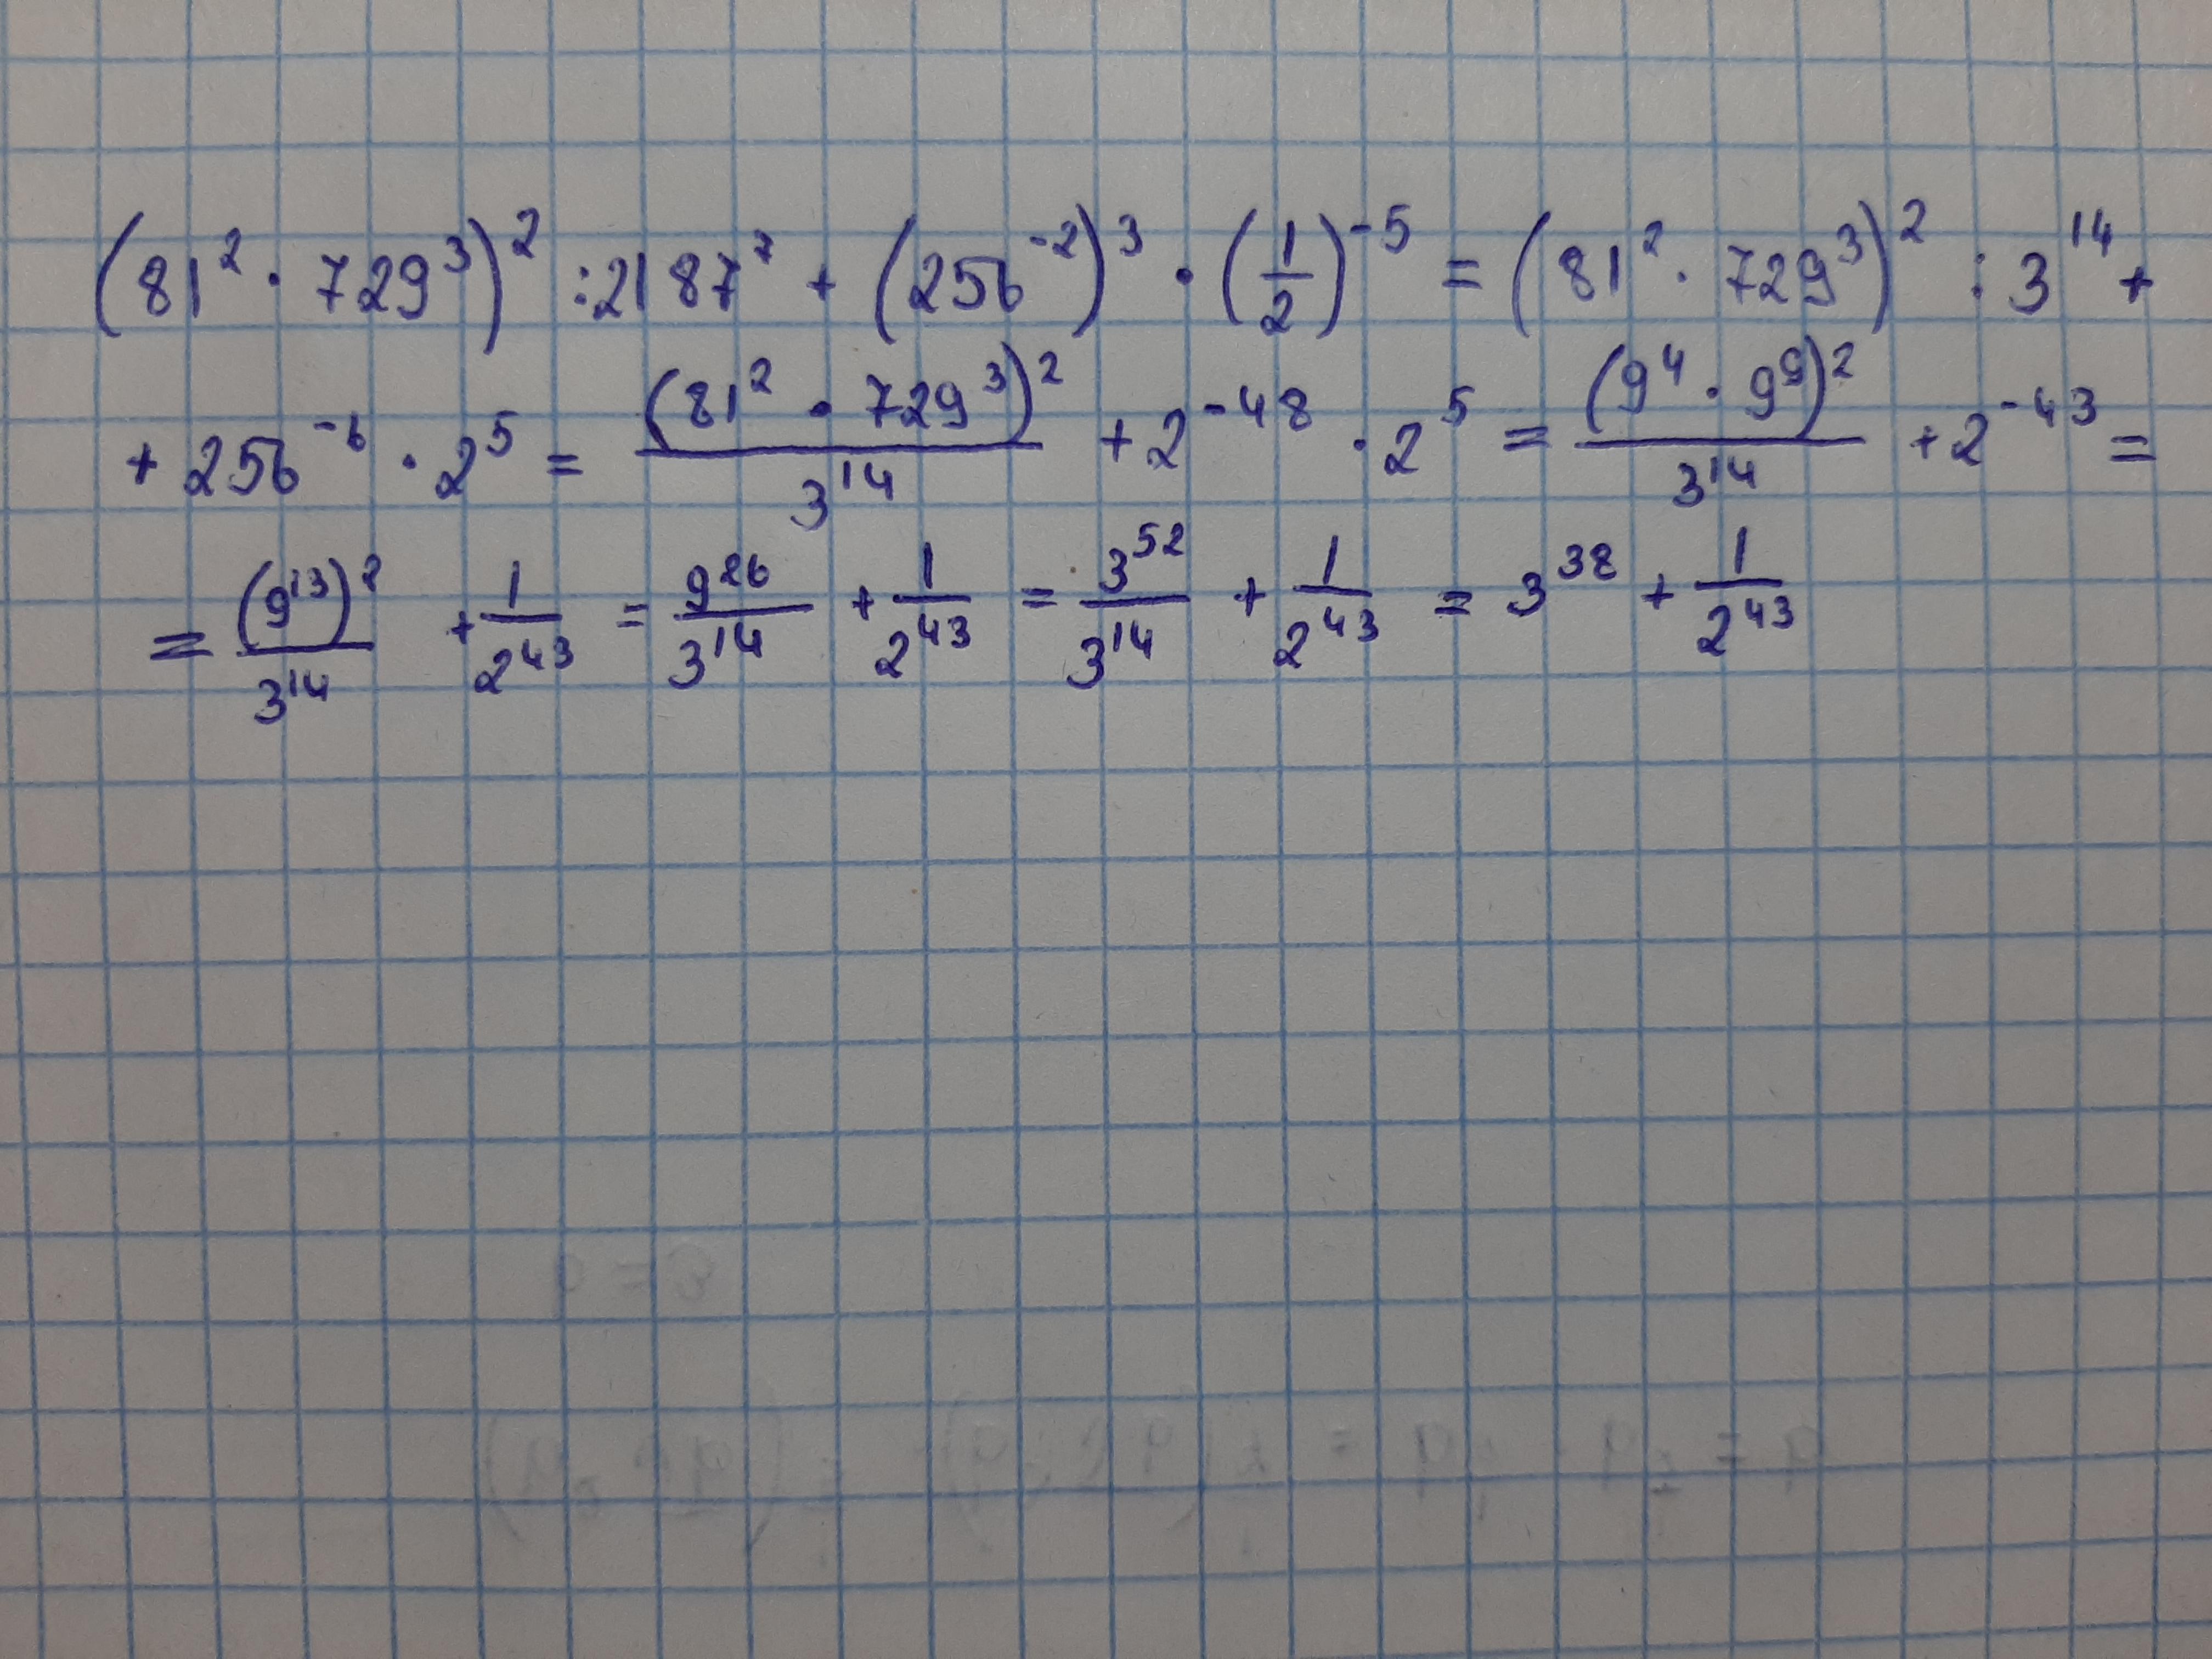 (81² · 729³)² : 2187⁷ + (256⁻²)³ · (1/2)⁻⁵ = (81² · 729³)² : 3¹⁴ +
+ 256⁻⁶ · 2⁵ = (81² · 729³)²/3¹⁴ + 2⁻⁴⁸ · 2⁵ = (9⁴ · 9⁹)²/3¹⁴ + 2⁻⁴³ =
= (9¹³)²/3¹⁴ + 1/2⁴³ = 9²⁶/3¹⁴ + 1/2⁴³ = 3⁵²/3¹⁴ + 1/2⁴³ = 3³⁸ + 1/2⁴³